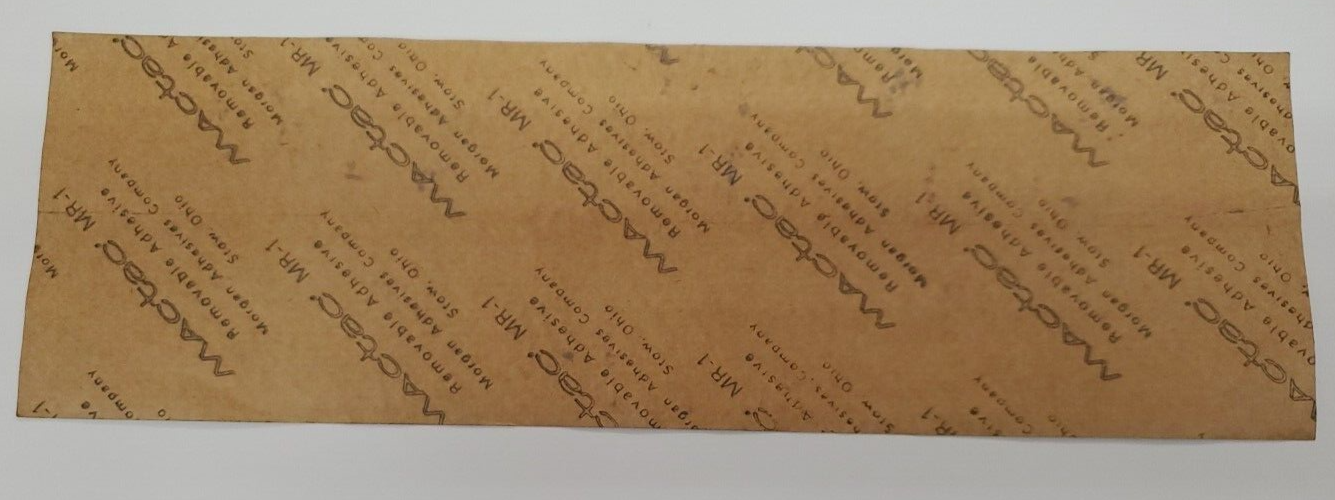 MACtac® MR-1
Removable Adhesive
Morgan Adhesives Company
Stow, Ohio
MACtac® MR-1
Removable Adhesive
Morgan Adhesives Company
Stow, Ohio
MACtac® MR-1
Removable Adhesive
Morgan Adhesives Company
Stow, Ohio
MACtac® MR-1
Removable Adhesive
Morgan Adhesives Company
Stow, Ohio
MACtac® MR-1
Removable Adhesive
Morgan Adhesives Company
Stow, Ohio
MACtac® MR-1
Removable Adhesive
Morgan Adhesives Company
Stow, Ohio
MACtac® MR-1
Removable Adhesive
Morgan Adhesives Company
Stow, Ohio